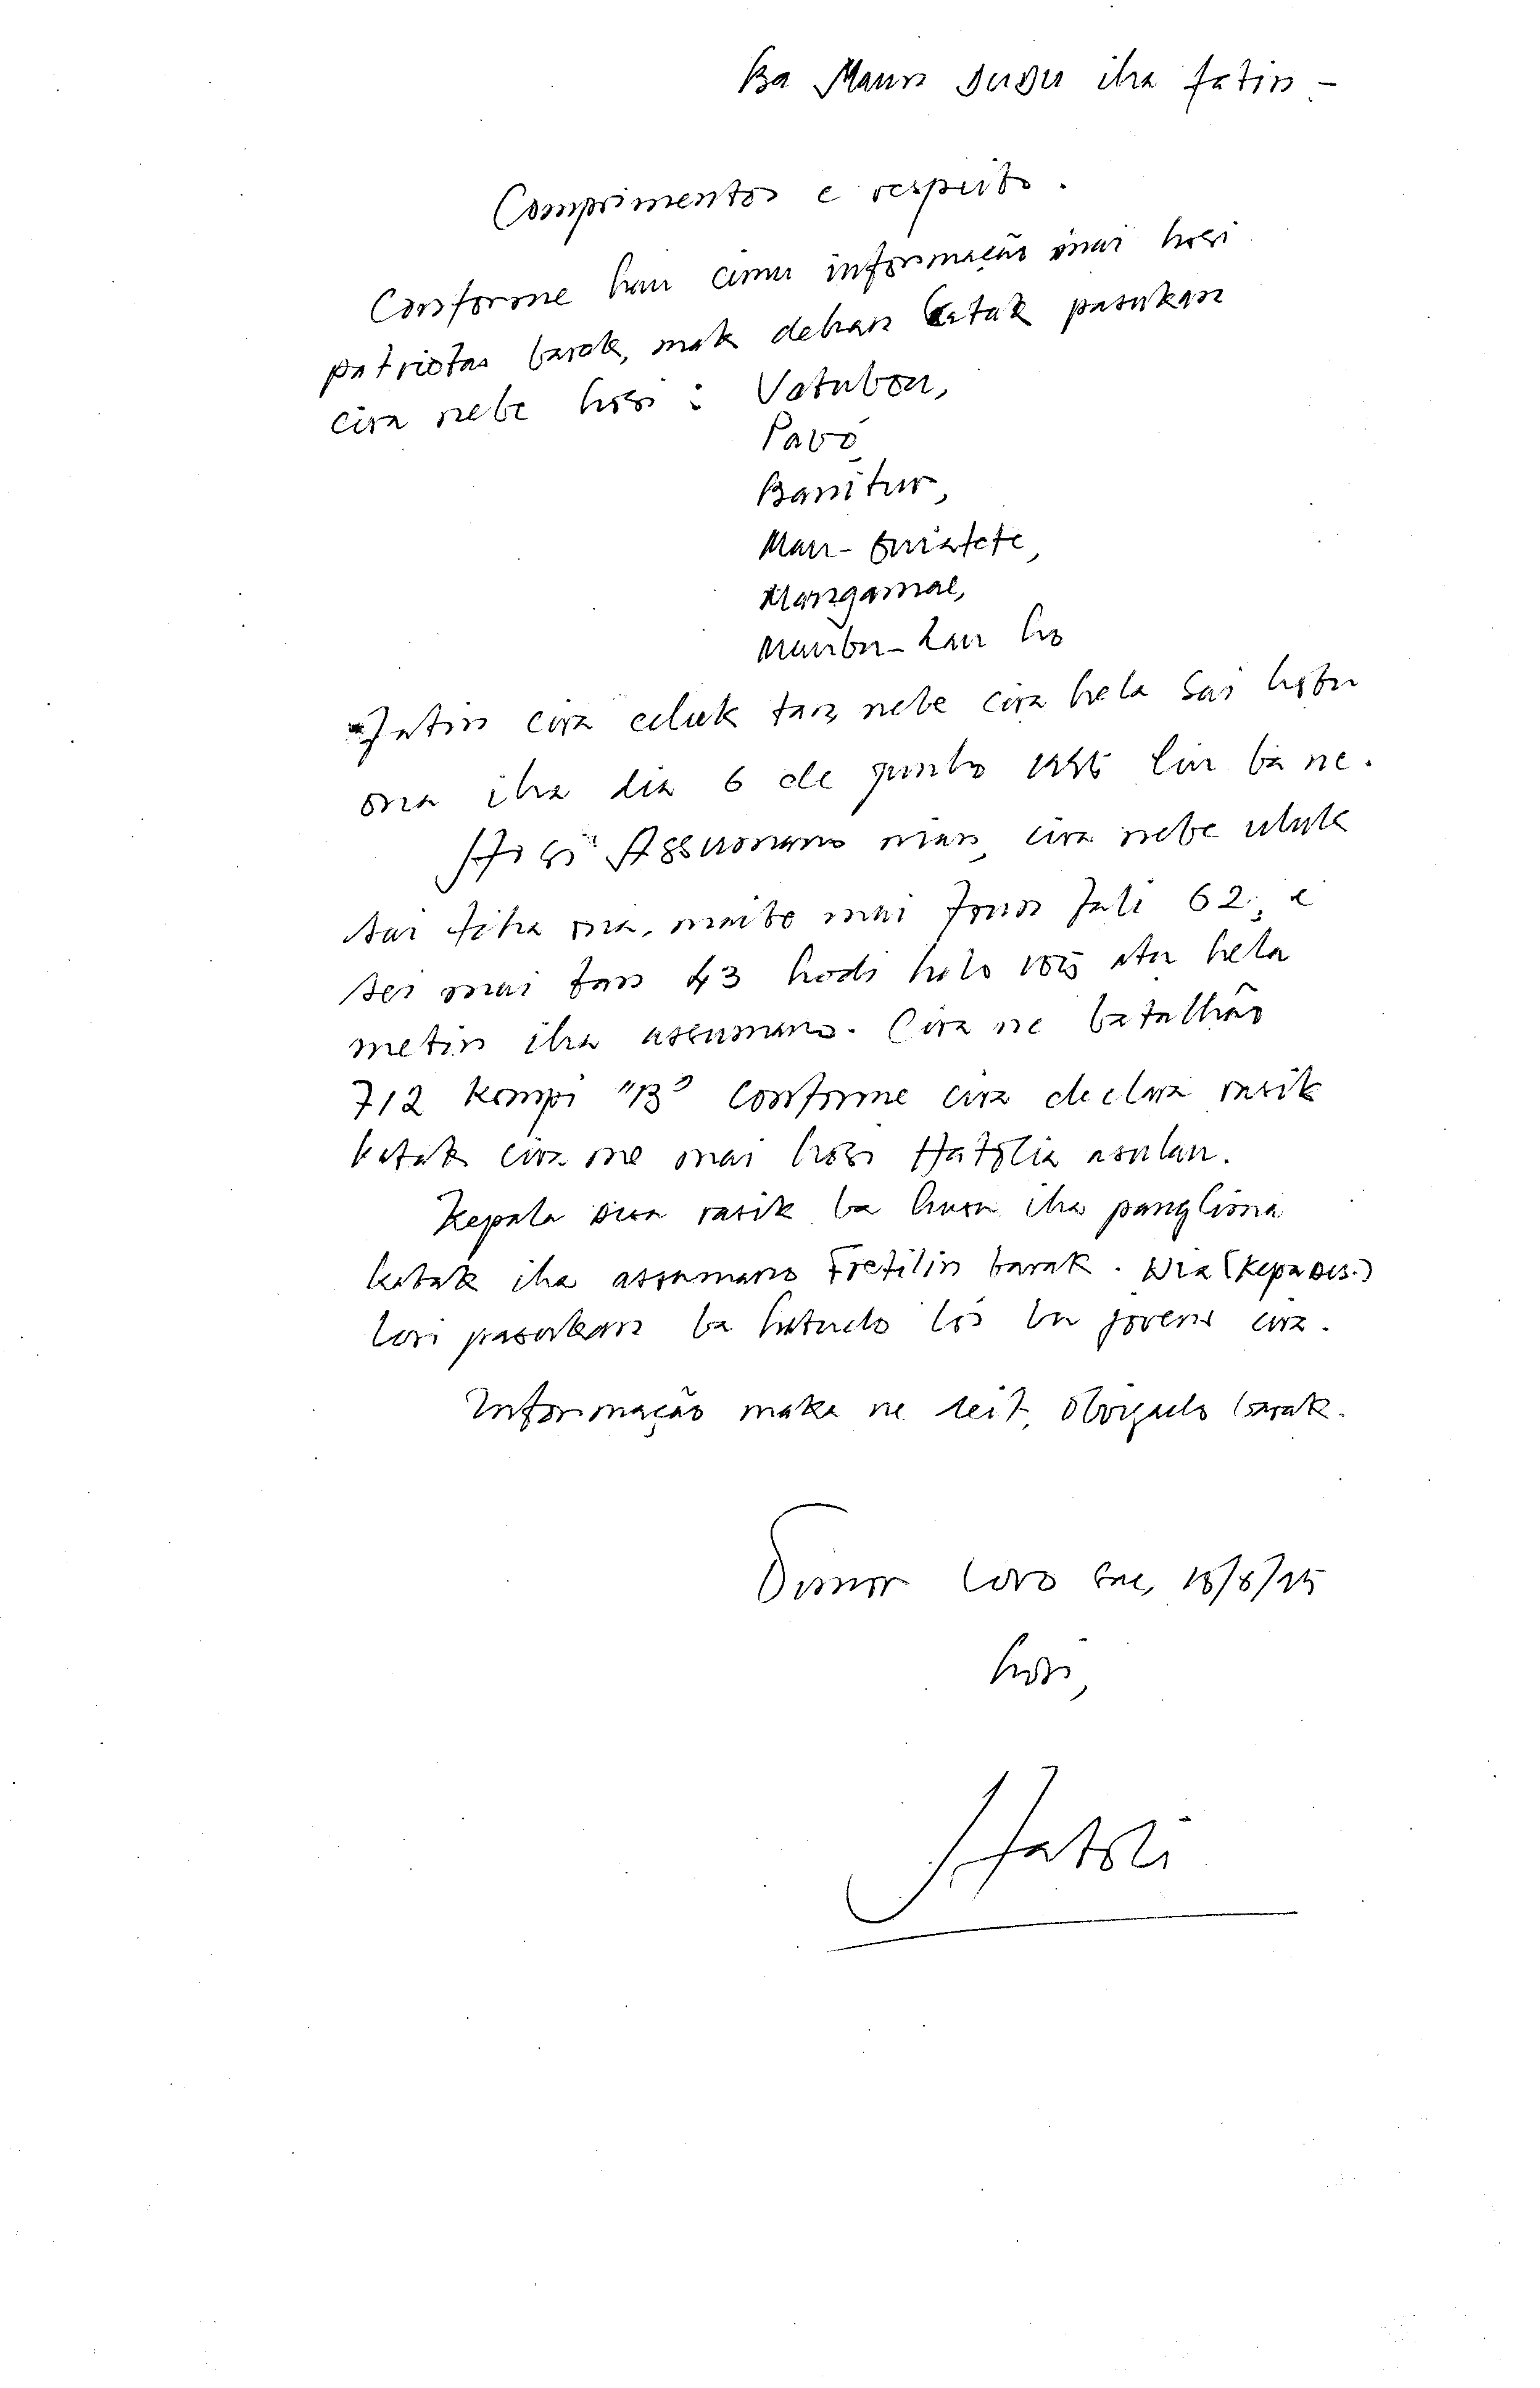 Ba Maun Dudu iha fatin -
Comprimentos e respeito.
Conforme hau cimu informação mai hosi
patriotas barak, mak dehan katak pasukan
cira nebe hosi : Vatubou,
Pavó,
Banitur,
Mau-
Mangamae,
Maubu-Lau ho
fatin cira celuk tan, nebe cira hela sai hotu
ona iha dia 6 de junho liu ba ne.
Hosi Assumano nian, cira nebe uluk
sai tiha ona, maibe mai foun fali 62, e
sei mai tan 43 hodi halo 105 atu hela
metin iha assumano. Cira ne batalhão
712 kompi "B" conforme cira declara rasik
katak cira ne mai hosi Hatolia asulau.
Kepala Desa rasik ba husu iha panglima
katak iha assumano Fretilin barak. Nia (Kepa Des.)
lori pasukan ba hatudo los bu jovens cira.
Informação maka ne deit, obrigado barak.
Timor Loro Sae, 18/8/95
hosi,
Hatoli